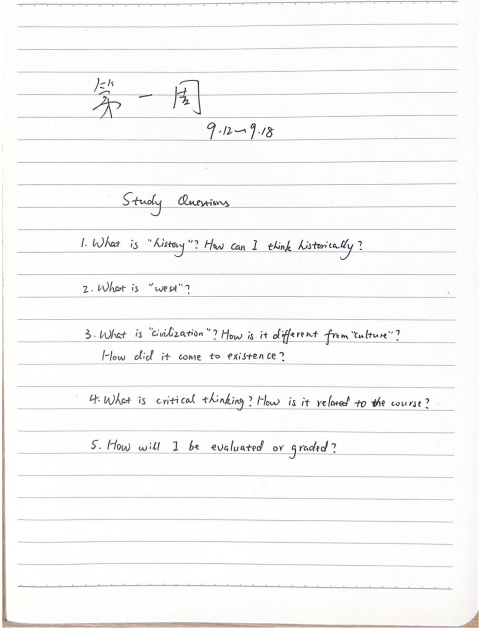 第一周
9.12~9.18
Study Questions
1. What is "history"? How can I think historically?
2. What is "west"?
3. What is "civilization"? How is it different from "culture"?
How did it come to existence?
4. What is critical thinking? How is it related to the course?
5. How will I be evaluated or graded?